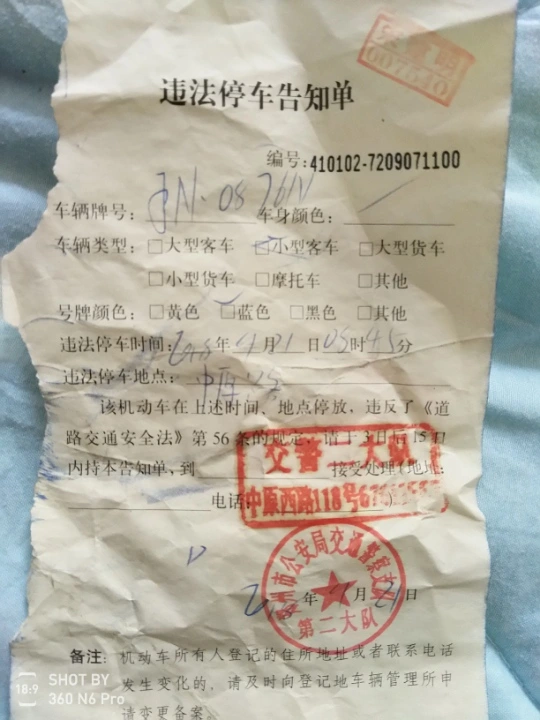 007540
违法停车告知单
编号:410102-7209071100
车辆牌号: 车身颜色:
车辆类型: □大型客车 □小型客车 □大型货车
□小型货车 □摩托车 □其他
号牌颜色: □黄色 □蓝色 □黑色 □其他
违法停车时间: 年 月21日 05时45分
违法停车地点: 中原
该机动车在上述时间、地点停放,违反了《道
路交通安全法》第56条的规定,请于3日后15日
内持本告知单,到 接受处理(地址:
交警二大队
电话:
中原西路118号
郑州市公安局交通警察支队
年 月21日
第二大队
备注: 机动车所有人登记的住所地址或者联系电话
发生变化的,请及时向登记地车辆管理所申
请变更备案。
18:9
SHOT BY
360 N6 Pro